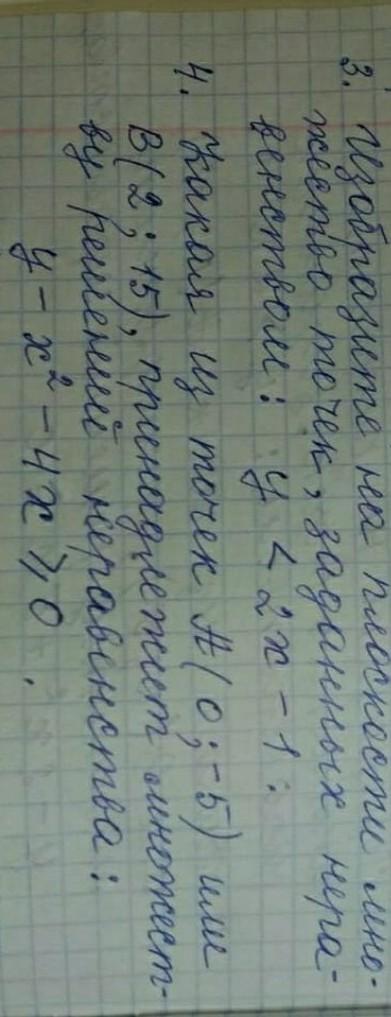 3. Изобразите на плоскости мно-
жество точек, заданных нера-
венством: y < 2x - 1.
4. Какая из точек A(0; -5) или
B(2; 15), принадлежит множест-
ву решений неравенства:
y - x² - 4x ⩾ 0.